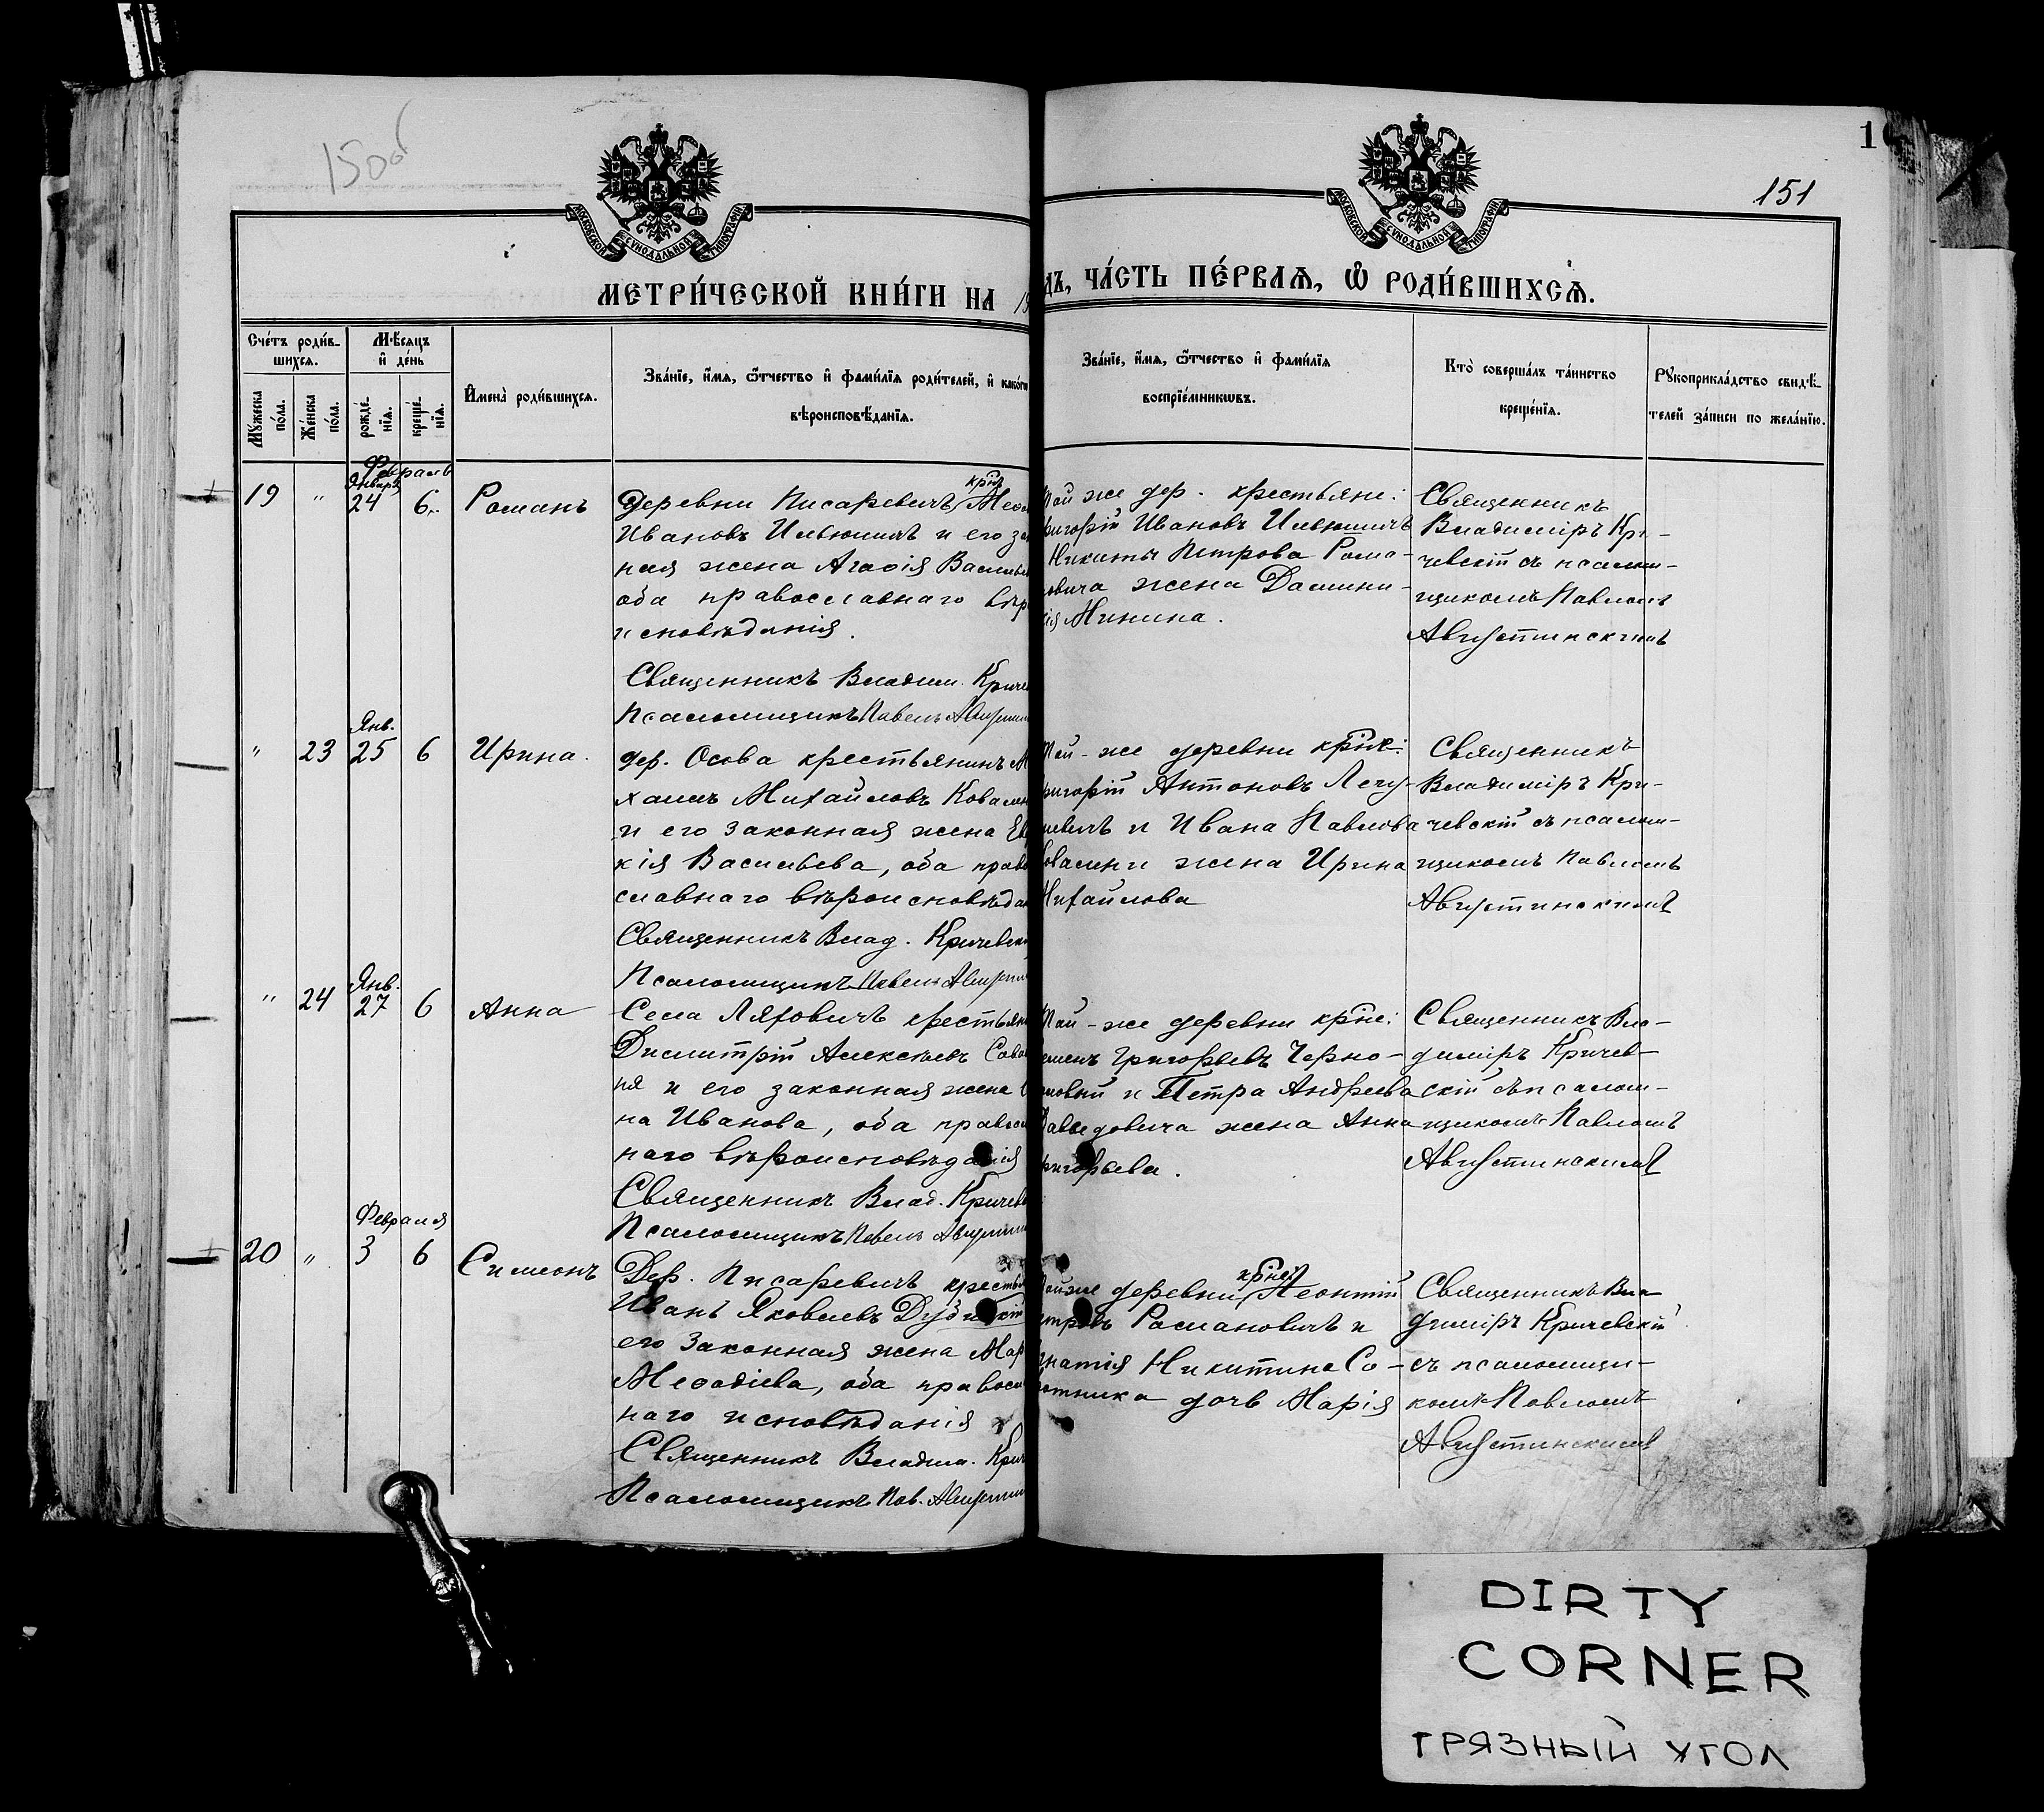 150об
1
151
МОСКОВСКОЙ СѴНОДАЛЬНОЙ ТИПОГРАФІИ
МОСКОВСКОЙ СѴНОДАЛЬНОЙ ТИПОГРАФІИ
МЕТРИ́ЧЕСКОЙ КНИ́ГИ НА 19
ДЪ, ЧА́СТЬ ПЕ́РВАѦ, Ѽ РОДИ́ВШИХСѦ.
Сче́тъ роди́в-
шихсѧ.
Мѣ́сѧцъ
и҆ де́нь
Мꙋ́жеска по́ла.
Же́нска по́ла.
рожде́-нїѧ.
креще́-нїѧ.
И҆мена̀ роди́вшихсѧ.
Зва́нїе, и҆́мѧ, ѻ҆́тчество и҆ фами́лїѧ роди́телей, и҆ како́гѡ
вѣроисповѣ́данїѧ.
Зва́нїе, и҆́мѧ, ѻ҆́тчество и҆ фами́лїѧ
воспрїе́мникѡвъ.
Кто̀ соверша́лъ та́инство
креще́нїѧ.
Рꙋкоприкла́дство свидѣ́-
телей за́писи по жела́нїю.
Февраль
Января
19 " 24 6 Романъ
Деревни Писаревичъ крнъ
Ивановъ Ильюшичъ и его за
ная жена Агаѳія Василье
оба православнаго вѣр
исповѣданія.
Священникъ Владим. Криче
Псаломщикъ Павелъ
той же дер. крестьяне:
ригорій Ивановъ Ильюшичъ
Никиты Петрова Рома-
овича жена Домини-
кія Минина.
Священникъ
Владиміръ Кри-
чевскій съ псалом-
щикомъ Павломъ
Августинскимъ
Янв.
" 23 25 6 Ирина.
дер. Осова крестьянинъ М
хаилъ Михайловъ Ковален
и его законная жена Ев
кія Васильева, оба право
славнаго вѣроисповѣдан
Священникъ Влад. Кричевск
Псаломщикъ Павелъ
той-же деревни крне:
ригорій Антоновъ
и Ивана Павлова
жена Ирина
Михайлова
Священникъ
Владиміръ Кри-
чевскій съ псалом-
щикомъ Павломъ
Августинскимъ
Янв.
" 24 27 6 Анна
Села Ляховичъ крестьян
Димитрій Алексѣевъ
ня и его законная жена
на Иванова, оба правосл
наго вѣроисповѣданія
Священникъ Влад. Кричев
Псаломщикъ Павелъ
той-же деревни крне:
Григорьевъ Черно-
и Петра Андреева
жена Анна
ригорьева.
Священникъ Вла-
диміръ Кричев-
скій съ псалом-
щикомъ Павломъ
Августинскимъ
Февраля
20 " 3 6 Симеонъ
Дер. Писаревичъ крестья
Иванъ Яковлевъ
его законная жена Мар
Меѳодіева, оба правосл
наго исповѣданія
Священникъ Владим. Крич
Псаломщикъ Пав.
тойже деревни крне Леонтій
етровъ Романовичъ и
гнатія Никитина Со-
отника дочь Марія
Священникъ Вла
диміръ Кричевскій
съ псаломщи-
комъ Павломъ
Августинскимъ
DIRTY
CORNER
ГРЯЗНЫЙ УГОЛ